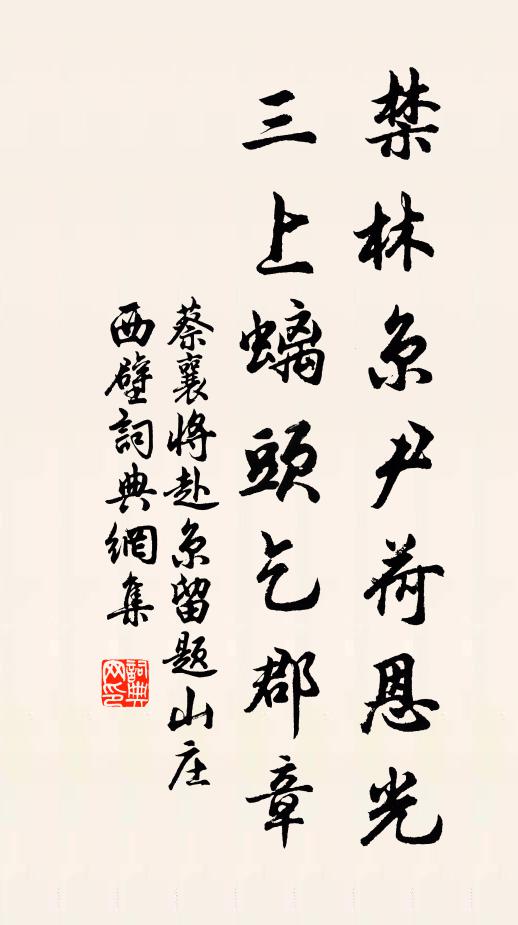 禁林京尹荷恩光
三上螭頭乞郡章
蔡襄将赴京留题山庄
西壁詞典網集
詞典网印